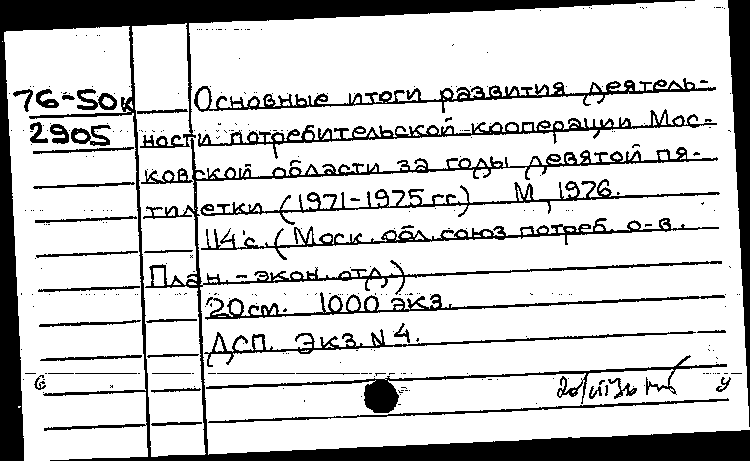 76-50к Основные итоги развития деятель-
2905 ности потребительской кооперации Мос-
ковской области за годы девятой пя-
тилетки (1971-1975 гг.) М, 1976.
114 с. (Моск. обл. союз потреб. о-в.
План.-экон. отд.)
20 см. 1000 экз.
ДСП. Экз. N 4.